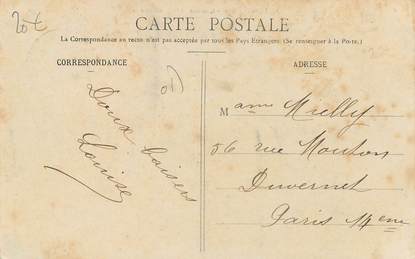 20€
CARTE POSTALE
La Correspondance au recto n'est pas acceptée par tous les Pays Etrangers. (Se renseigner à la Poste.)
CORRESPONDANCE
Doux baisers
Louise
ADRESSE
Mame Mielly
56 rue Mouton
Duvernet
Paris 14eme